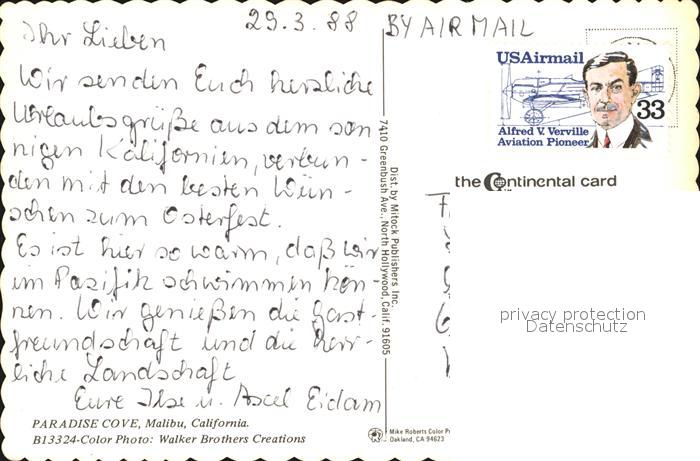 29.3.88
BY AIR MAIL
Ihr Lieben
Wir senden Euch herzliche
Urlaubsgrüße aus dem son-
nigen Kalifornien, verbun-
den mit den besten Wün-
schen zum Osterfest.
Es ist hier so warm, daß wir
im Pazifik schwimmen kön-
nen. Wir genießen die Gast-
freundschaft und die herr-
liche Landschaft
Eure Ilse u. Axel Eidam
PARADISE COVE, Malibu, California.
B13324-Color Photo: Walker Brothers Creations
Dist. by Mitock Publishers Inc.
7410 Greenbush Ave., North Hollywood, Calif. 91605
USAirmail
33
Alfred V. Verville
Aviation Pioneer
the Continental card
privacy protection
Datenschutz
Mike Roberts Color Pr
Oakland, CA 94623